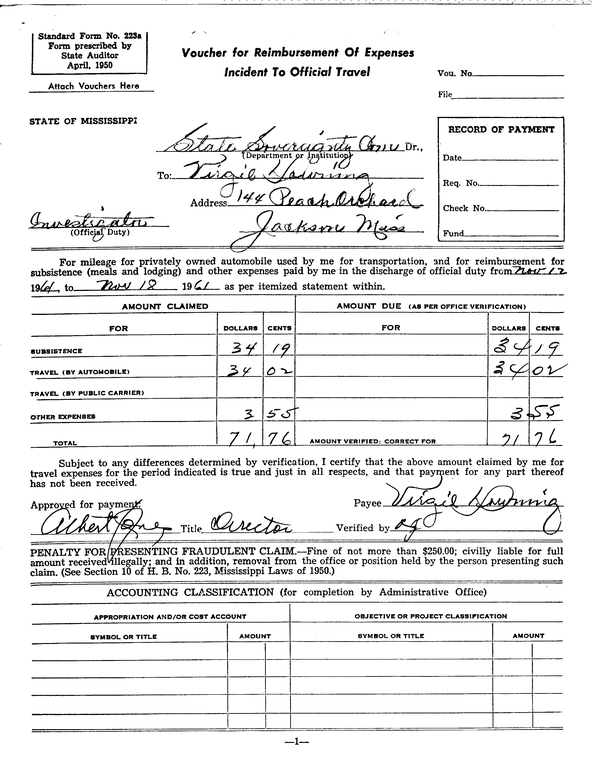 Standard Form No. 223a
Form prescribed by
State Auditor
April, 1950
Attach Vouchers Here
Voucher for Reimbursement Of Expenses
Incident To Official Travel
Vou. No.
File
STATE OF MISSISSIPPI
State Sovereignty Com Dr.,
(Department or Institution)
To: Virgil Downing
Address 144 Peach Orchard
Jackson Miss
Investigator
(Official Duty)
RECORD OF PAYMENT
Date
Req. No.
Check No.
Fund
For mileage for privately owned automobile used by me for transportation, and for reimbursement for
subsistence (meals and lodging) and other expenses paid by me in the discharge of official duty from Nov 12
1961, to Nov 18 1961 as per itemized statement within.
AMOUNT CLAIMED AMOUNT DUE (AS PER OFFICE VERIFICATION)
FOR DOLLARS CENTS FOR DOLLARS CENTS
SUBSISTENCE 34 19 34 19
TRAVEL (BY AUTOMOBILE) 34 02 34 02
TRAVEL (BY PUBLIC CARRIER)
OTHER EXPENSES 3 55 3 55
TOTAL 71, 76 AMOUNT VERIFIED: CORRECT FOR 71 76
Subject to any differences determined by verification, I certify that the above amount claimed by me for
travel expenses for the period indicated is true and just in all respects, and that payment for any part thereof
has not been received.
Approved for payment Payee Virgil Downing
Albert Jones Title Director Verified by
PENALTY FOR PRESENTING FRAUDULENT CLAIM.—Fine of not more than $250.00; civilly liable for full
amount received illegally; and in addition, removal from the office or position held by the person presenting such
claim. (See Section 10 of H. B. No. 223, Mississippi Laws of 1950.)
ACCOUNTING CLASSIFICATION (for completion by Administrative Office)
APPROPRIATION AND/OR COST ACCOUNT OBJECTIVE OR PROJECT CLASSIFICATION
SYMBOL OR TITLE AMOUNT SYMBOL OR TITLE AMOUNT
—1—